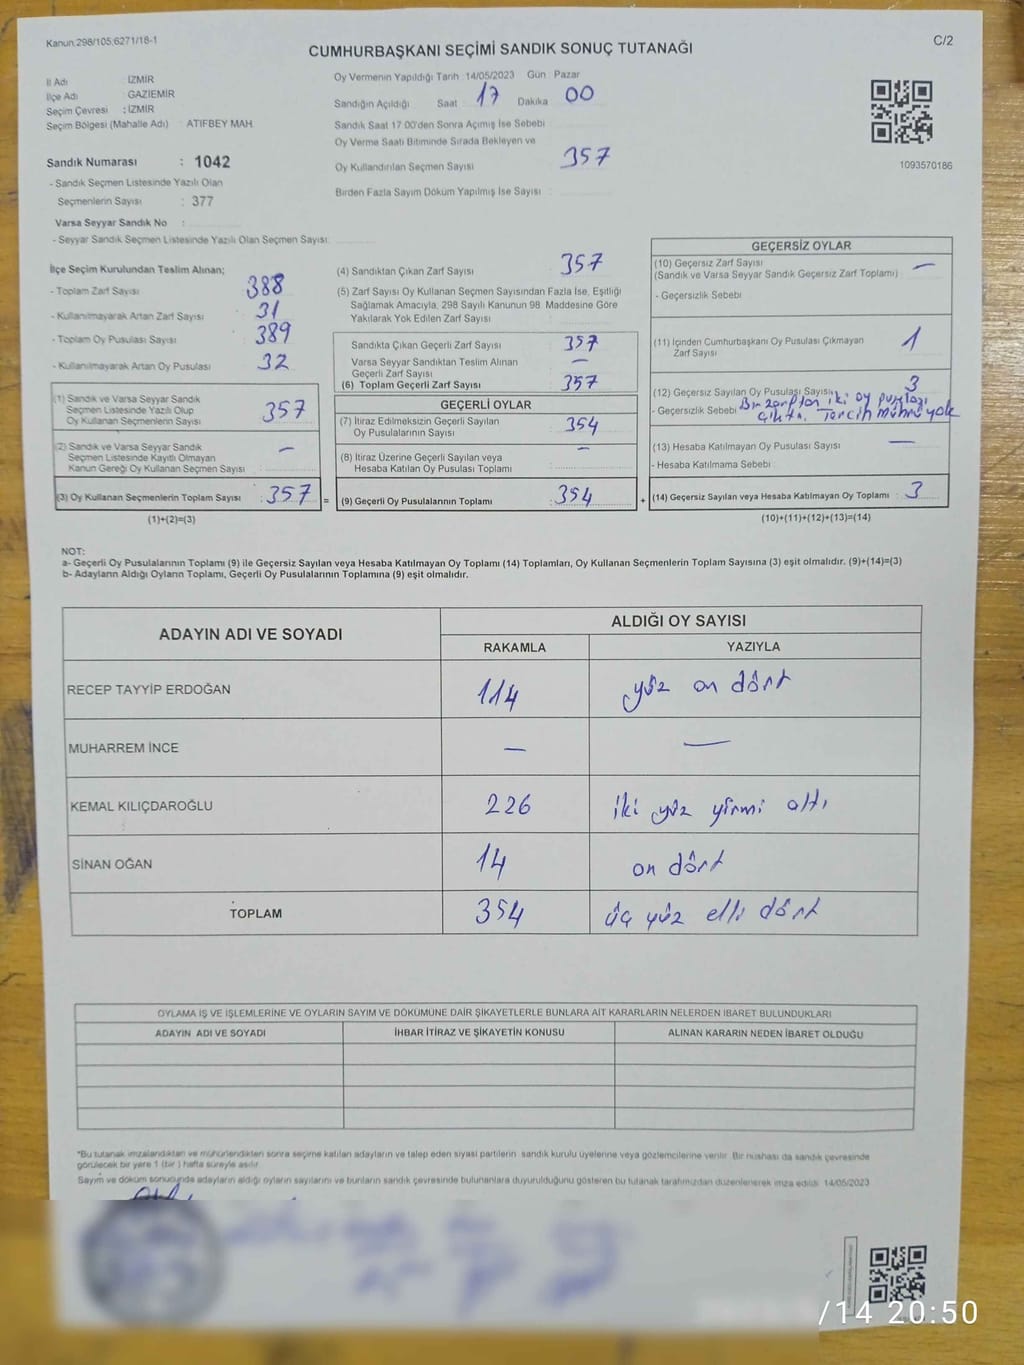 Kanun:298/105,6271/18-1
C/2
CUMHURBAŞKANI SEÇİMİ SANDIK SONUÇ TUTANAĞI
İl Adı : İZMİR
İlçe Adı : GAZİEMİR
Seçim Çevresi : İZMİR
Seçim Bölgesi (Mahalle Adı) : ATIFBEY MAH.
Sandık Numarası : 1042
- Sandık Seçmen Listesinde Yazılı Olan
Seçmenlerin Sayısı : 377
Varsa Seyyar Sandık No :
- Seyyar Sandık Seçmen Listesinde Yazılı Olan Seçmen Sayısı:
Oy Vermenin Yapıldığı Tarih :14/05/2023 Gün : Pazar
Sandığın Açıldığı Saat : 17 Dakika : 00
Sandık Saat 17:00'den Sonra Açımış İse Sebebi :
Oy Verme Saati Bitiminde Sırada Bekleyen ve
Oy Kullandırılan Seçmen Sayısı : 357
Birden Fazla Sayım Döküm Yapılmış İse Sayısı :
1093570186
İlçe Seçim Kurulundan Teslim Alınan;
- Toplam Zarf Sayısı : 388
- Kullanılmayarak Artan Zarf Sayısı : 31
- Toplam Oy Pusulası Sayısı : 389
- Kullanılmayarak Artan Oy Pusulası : 32
(1) Sandık ve Varsa Seyyar Sandık
Seçmen Listesinde Yazılı Olup
Oy Kullanan Seçmenlerin Sayısı : 357
(2) Sandık ve Varsa Seyyar Sandık
Seçmen Listesinde Kayıtlı Olmayan
Kanun Gereği Oy Kullanan Seçmen Sayısı : –
(3) Oy Kullanan Seçmenlerin Toplam Sayısı : 357 =
(1)+(2)=(3)
(4) Sandıktan Çıkan Zarf Sayısı : 357
(5) Zarf Sayısı Oy Kullanan Seçmen Sayısından Fazla İse, Eşitliği
Sağlamak Amacıyla, 298 Sayılı Kanunun 98. Maddesine Göre
Yakılarak Yok Edilen Zarf Sayısı :
Sandıkta Çıkan Geçerli Zarf Sayısı : 357
Varsa Seyyar Sandıktan Teslim Alınan
Geçerli Zarf Sayısı : –
(6) Toplam Geçerli Zarf Sayısı : 357
GEÇERLİ OYLAR
(7) İtiraz Edilmeksizin Geçerli Sayılan
Oy Pusulalarının Sayısı : 354
(8) İtiraz Üzerine Geçerli Sayılan veya
Hesaba Katılan Oy Pusulası Toplamı : –
(9) Geçerli Oy Pusulalarının Toplamı : 354 +
GEÇERSİZ OYLAR
(10) Geçersiz Zarf Sayısı : –
(Sandık ve Varsa Seyyar Sandık Geçersiz Zarf Toplamı)
- Geçersizlik Sebebi :
(11) İçinden Cumhurbaşkanı Oy Pusulası Çıkmayan
Zarf Sayısı : 1
(12) Geçersiz Sayılan Oy Pusulası Sayısı : 3
- Geçersizlik Sebebi : Bir zarftan iki oy pusulası
çıktı. Tercih mührü yok
(13) Hesaba Katılmayan Oy Pusulası Sayısı : –
- Hesaba Katılmama Sebebi :
(14) Geçersiz Sayılan veya Hesaba Katılmayan Oy Toplamı : 3
(10)+(11)+(12)+(13)=(14)
NOT:
a- Geçerli Oy Pusulalarının Toplamı (9) ile Geçersiz Sayılan veya Hesaba Katılmayan Oy Toplamı (14) Toplamları, Oy Kullanan Seçmenlerin Toplam Sayısına (3) eşit olmalıdır. (9)+(14)=(3)
b- Adayların Aldığı Oyların Toplamı, Geçerli Oy Pusulalarının Toplamına (9) eşit olmalıdır.
ADAYIN ADI VE SOYADI
ALDIĞI OY SAYISI
RAKAMLA YAZIYLA
RECEP TAYYİP ERDOĞAN 114 yüz on dört
MUHARREM İNCE – –
KEMAL KILIÇDAROĞLU 226 iki yüz yirmi altı
SİNAN OĞAN 14 on dört
TOPLAM 354 üç yüz elli dört
OYLAMA İŞ VE İŞLEMLERİNE VE OYLARIN SAYIM VE DÖKÜMÜNE DAİR ŞİKAYETLERLE BUNLARA AİT KARARLARIN NELERDEN İBARET BULUNDUKLARI
ADAYIN ADI VE SOYADI İHBAR İTİRAZ VE ŞİKAYETİN KONUSU ALINAN KARARIN NEDEN İBARET OLDUĞU
*Bu tutanak imzalandıktan ve mühürlendikten sonra seçime katılan adayların ve talep eden siyasi partilerin sandık kurulu üyelerine veya gözlemcilerine verilir. Bir nüshası da sandık çevresinde
görülecek bir yere 1 (bir ) hafta süreyle asılır.
Sayım ve döküm sonucunda adayların aldığı oyların sayılarını ve bunların sandık çevresinde bulunanlara duyurulduğunu gösteren bu tutanak tarafımızdan düzenlenerek imza edildi. 14/05/2023
/14 20:50